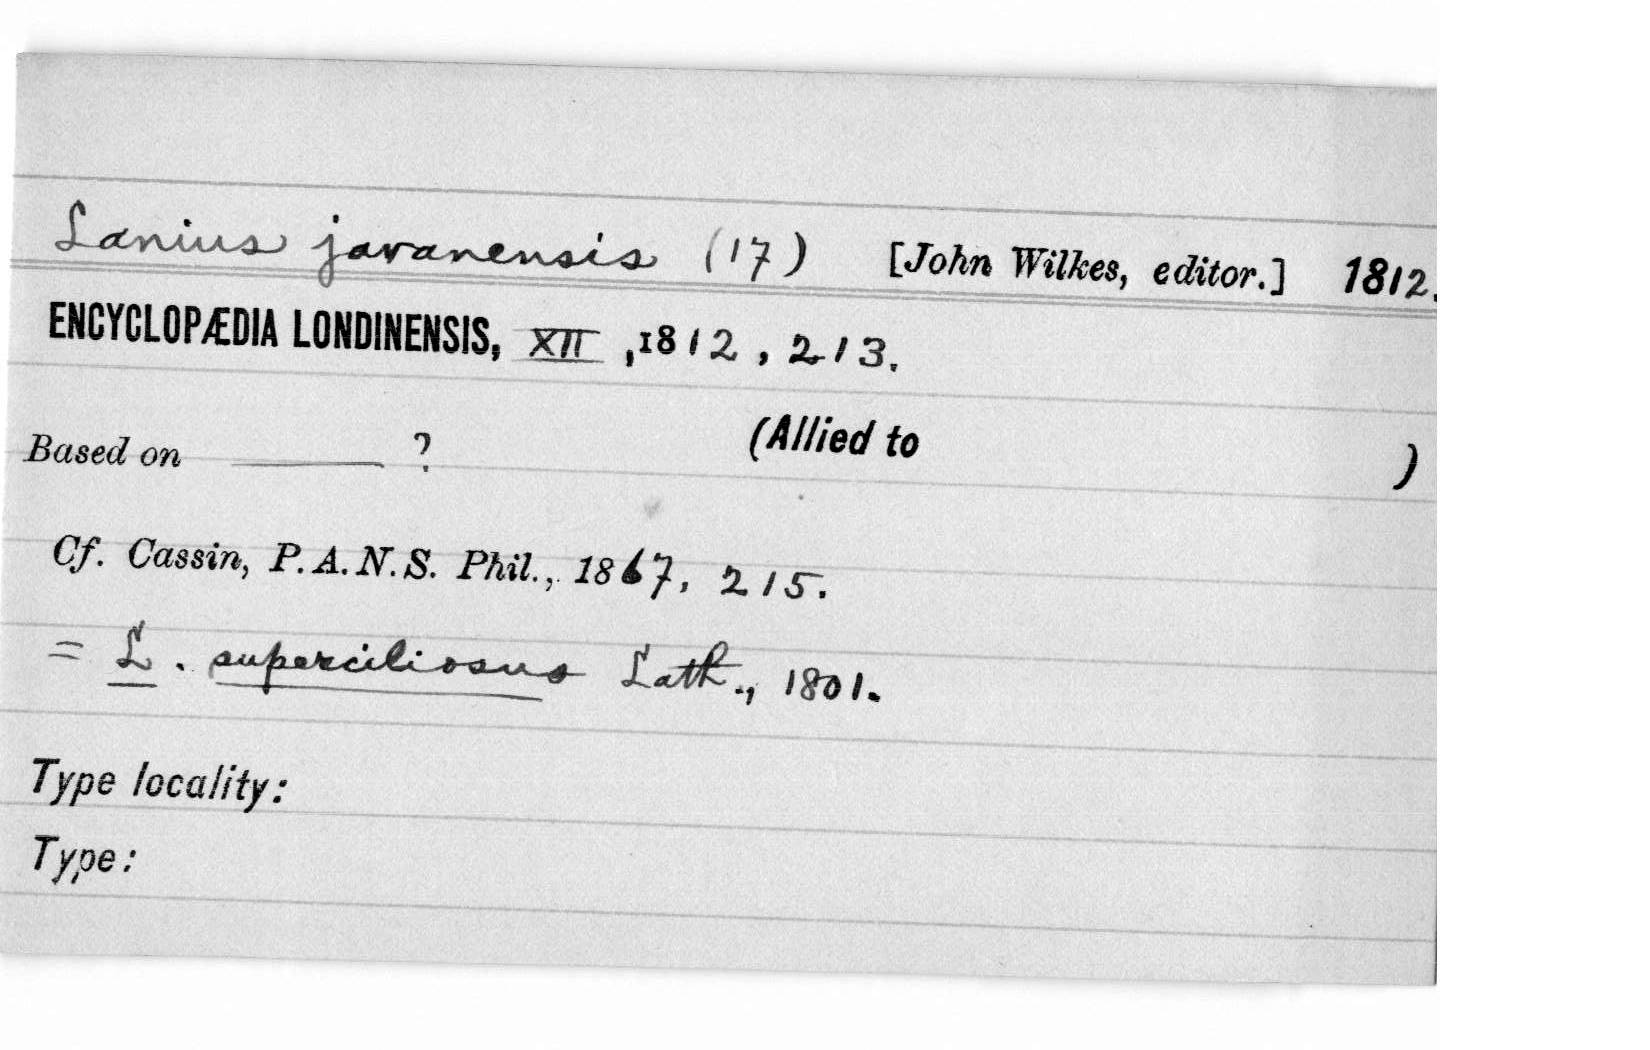 Lanius javanensis (17) [John Wilkes, editor.] 1812.
ENCYCLOPÆDIA LONDINENSIS, XII, 1812, 213.
Based on ——— ? (Allied to )
Cf. Cassin, P.A.N.S. Phil., 1867, 215.
= L. superciliosus Lath., 1801.
Type locality:
Type: